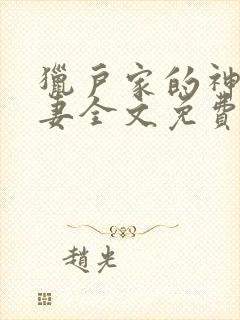 獵戶家的神
妻全文免費
趙光